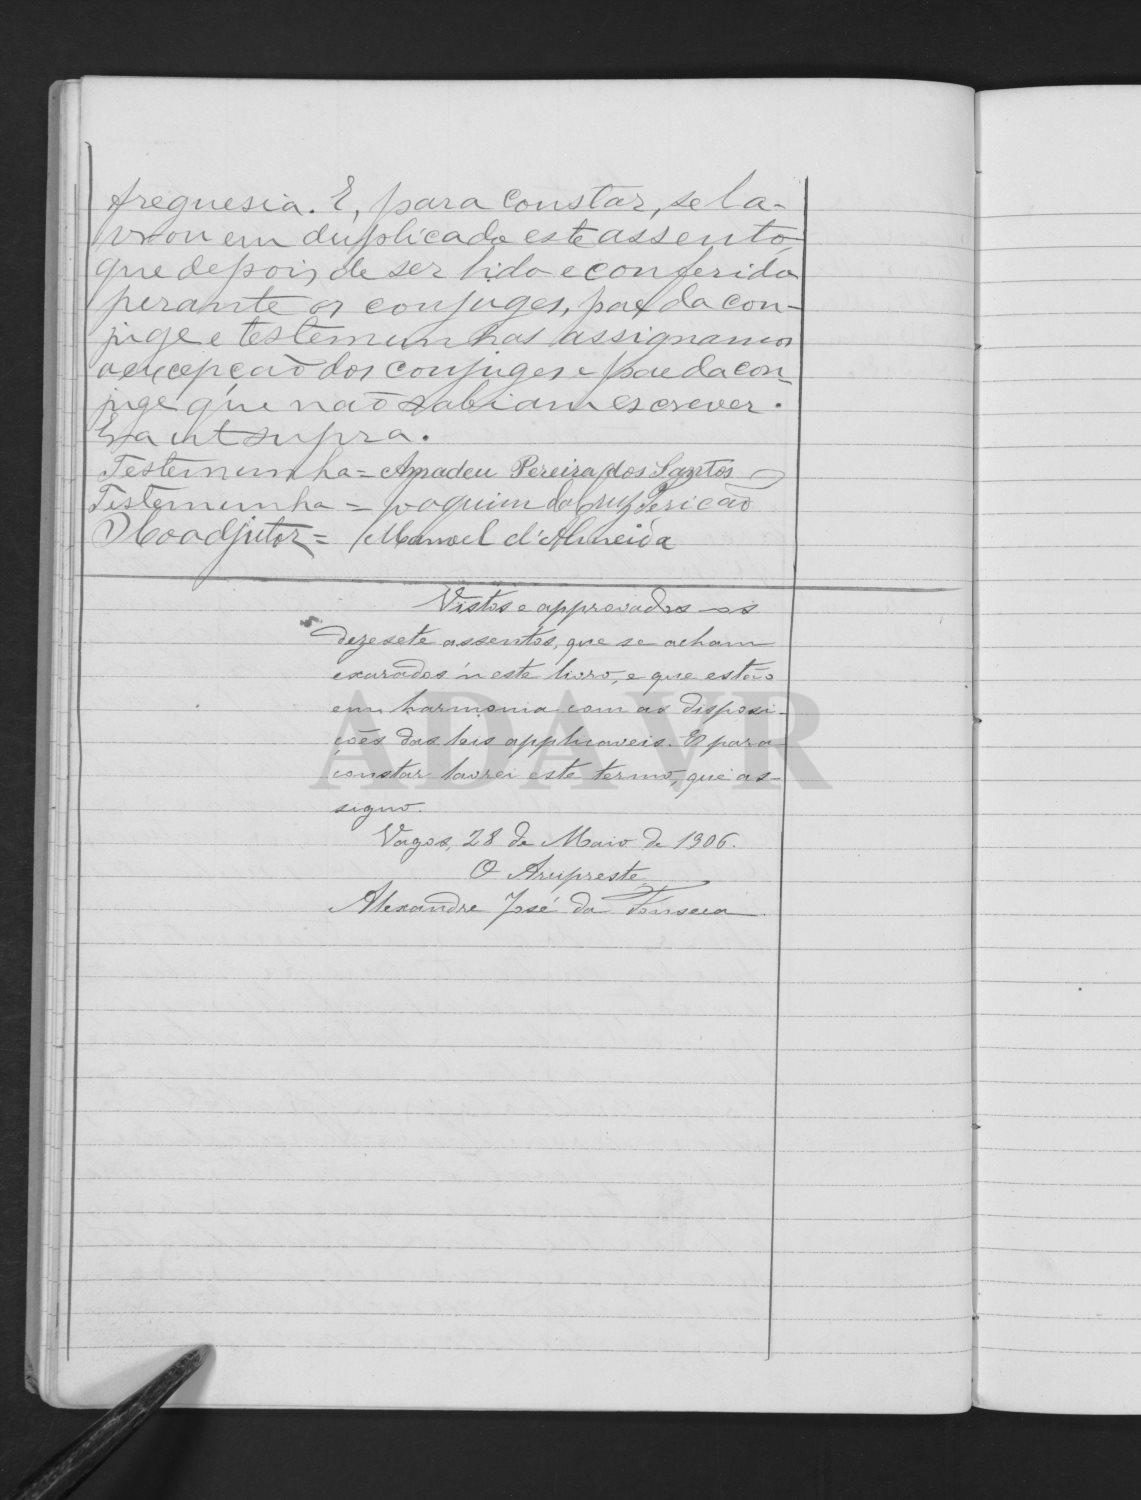 freguesia. E, para constar, se la-
vrou em duplicado este assento
que depois de ser lido e conferido
perante os conjuges, pae da con-
juge e testemunhas assignamos
a excepção dos conjuges e pae da con-
juge que não sabiam escrever.
Era ut supra.
Testemunha = Amadeu Pereira dos Santos
Testemunha = Joaquim da Cruz Pericão
O Coadjutor = Manoel d'Almeida
Vistos e approvados os
dezesete assentos, que se acham
exarados n'este livro, e que estão
em harmonia com as disposi-
ções das leis applicaveis. E para
constar lavrei este termo, que as-
signo.
Vagos, 28 de Maio de 1906.
O Arcipreste
Alexandre José da Fonseca
ADAVR